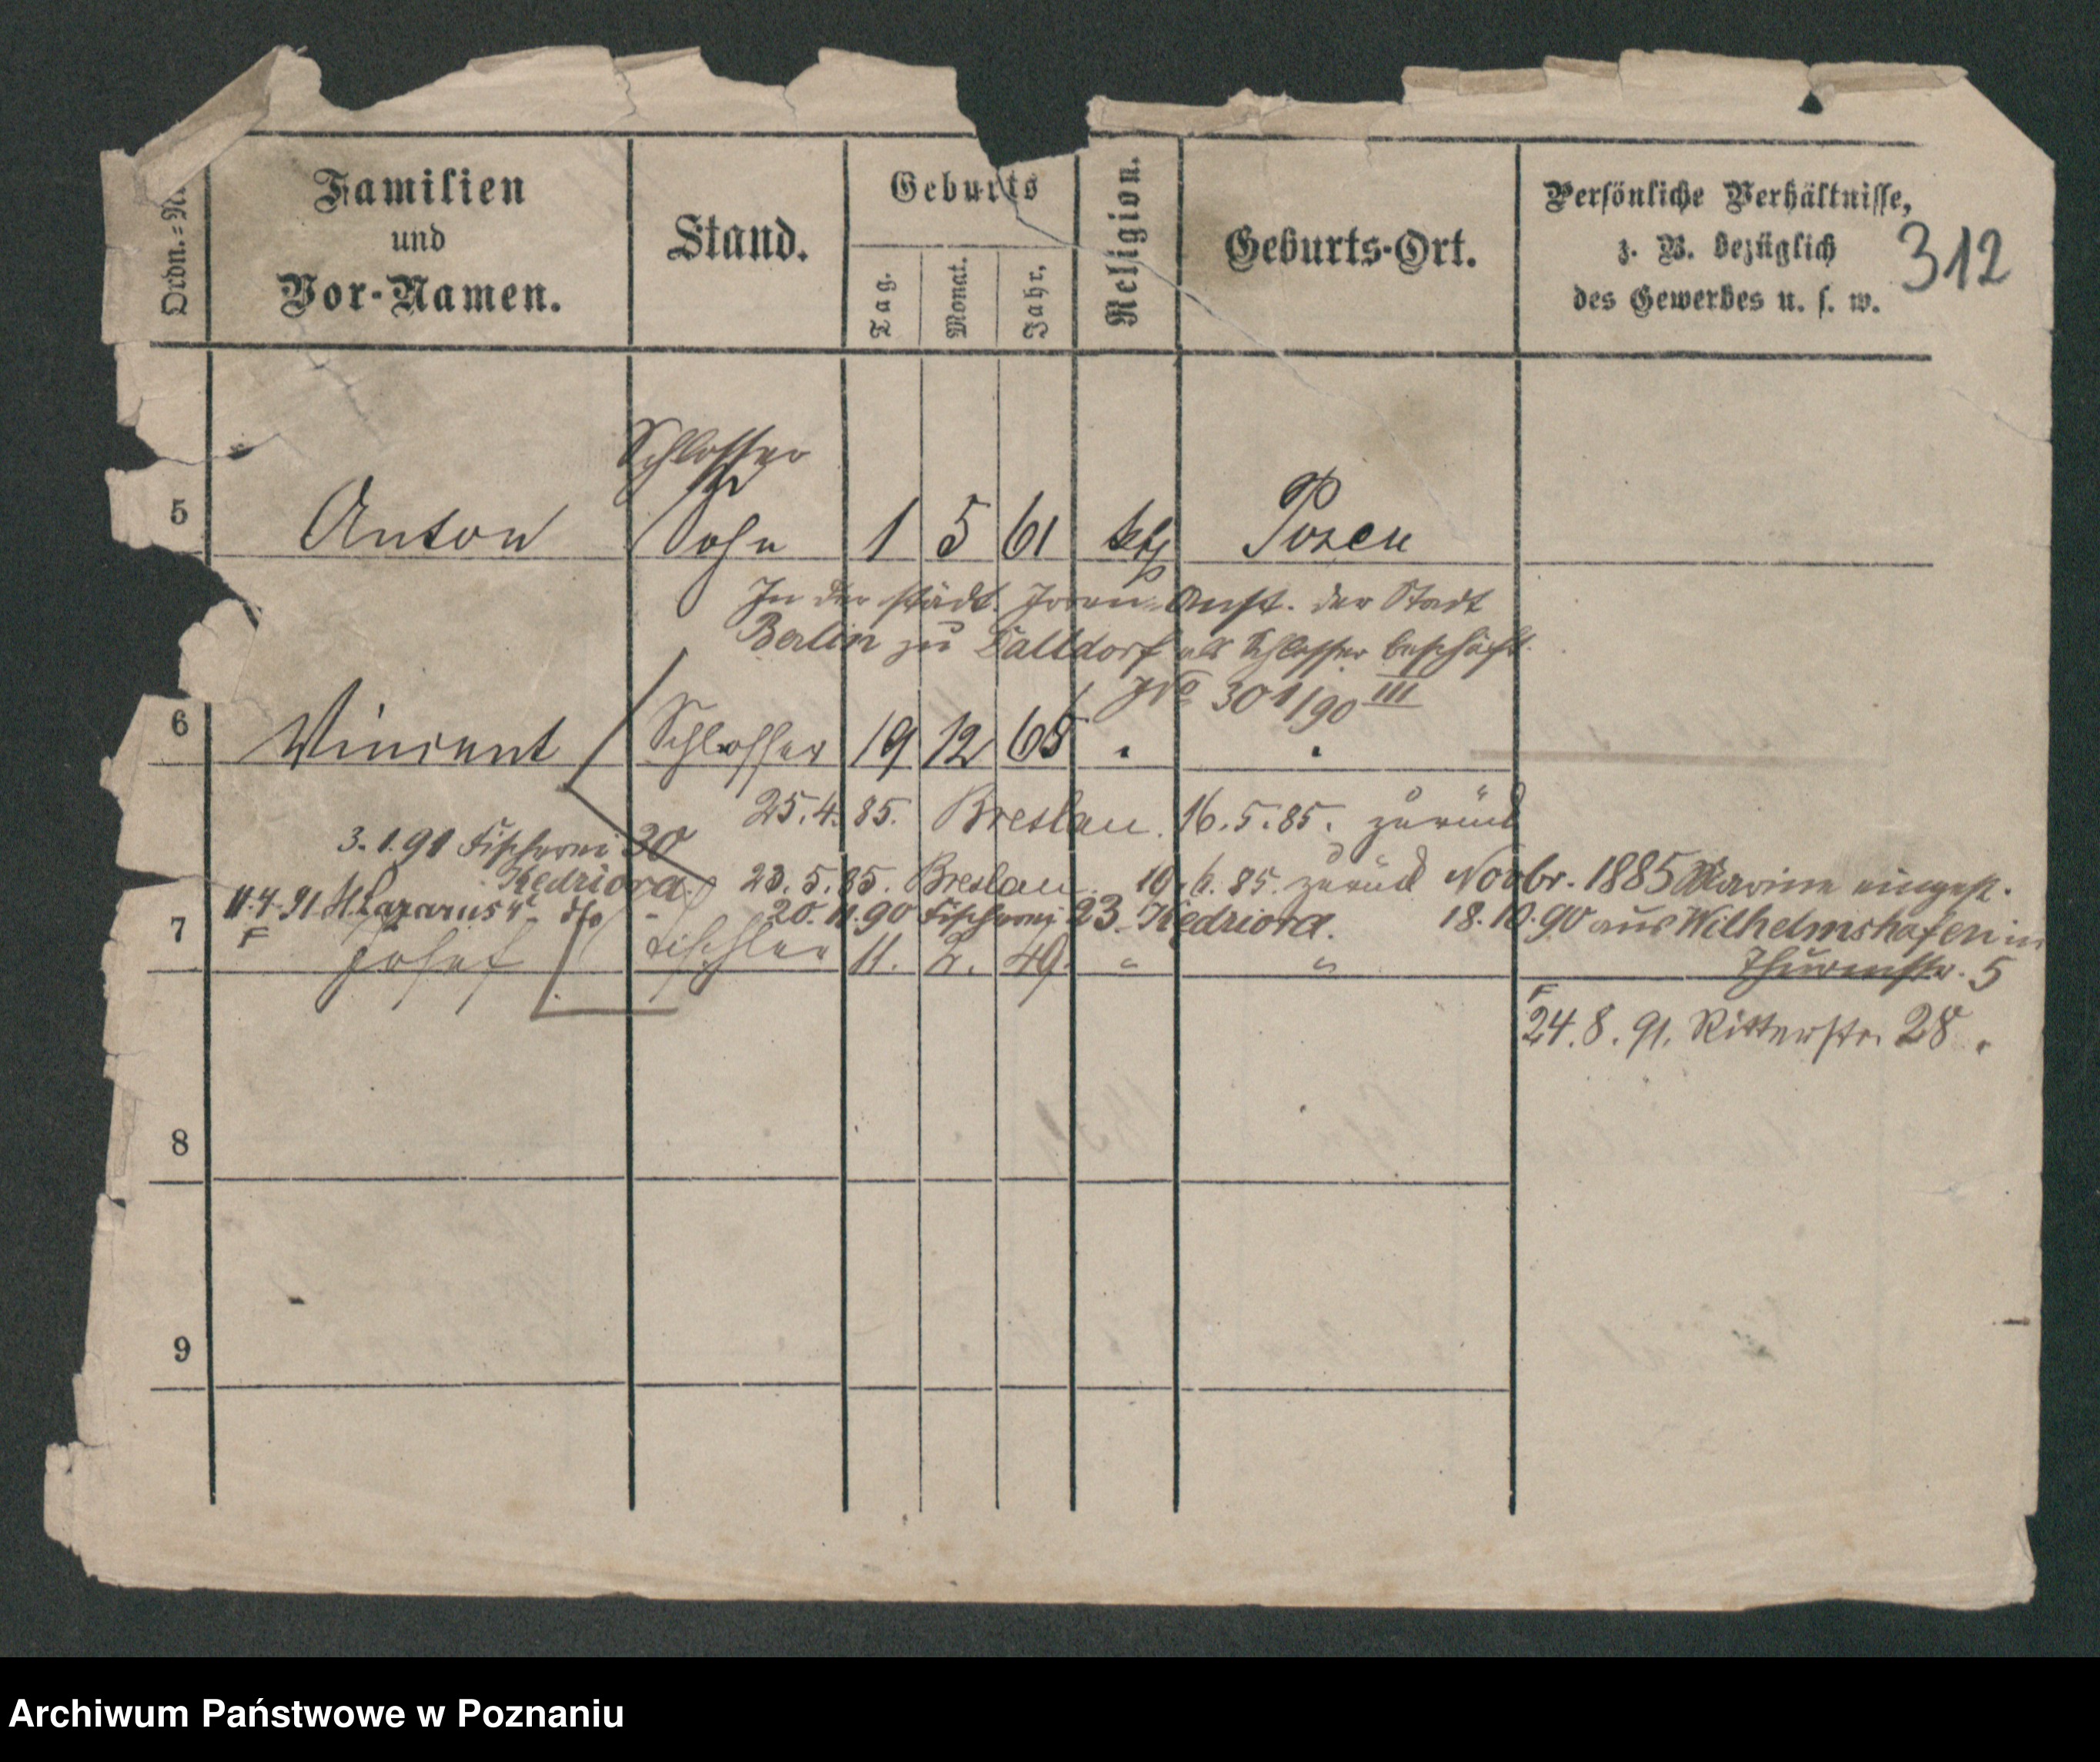 Ordn.-Nr
Familien
und
Vor-Namen.
Stand.
Geburts
Tag.
Monat.
Jahr.
Religion.
Geburts-Ort.
Persönliche Verhältnisse,
z. B. bezüglich
des Gewerbes u. s. w.
312
Schlosser
5 Anton Sohn 1 5 61 kth Posen
In der städt. Irren-Anst. der Stadt
Berlin zu Dalldorf als Schlosser beschäft.
No 301/90 III
6 Vincent Schlosser 19 12 65 " "
25.4.85. Breslau. 16.5.85. zurück
3.1.91 Fischerei 30
Kedziora. 23.5.85. Breslau. 10.6.85. zurück Novbr. 1885 Marine eingest.
11.4.91 St Lazarus 4 20.11.90 Fischerei 23 Kedziora. 18.10.90 aus Wilhelmshafen in
7 Josef Tischler 11. 2. 49. " "
Thurmstr. 5
24.8.91. Ritterstr. 28.
8
9
Archiwum Państwowe w Poznaniu